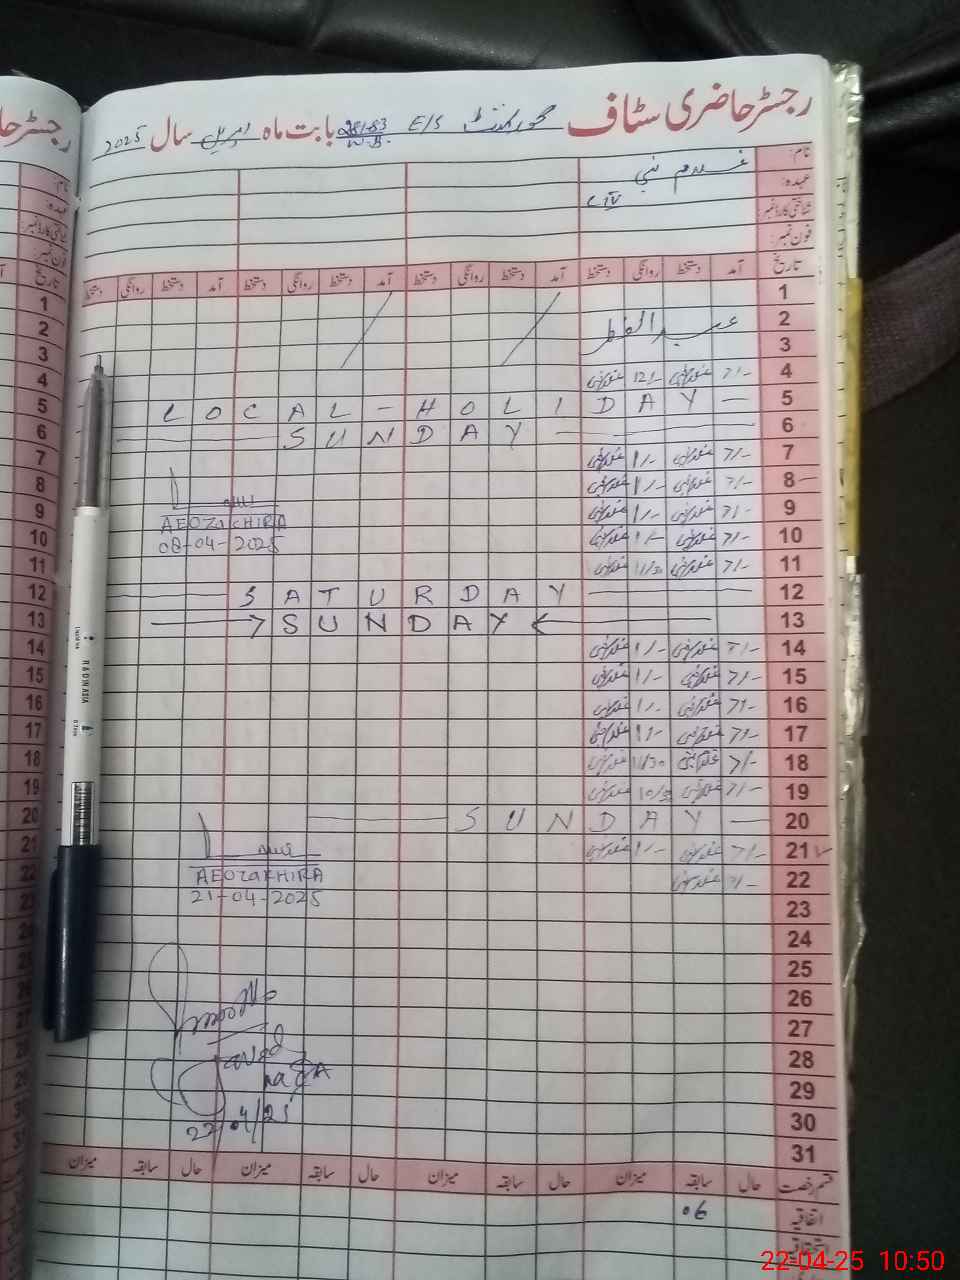 رجسٹر حاضری سٹاف گورنمنٹ E/S 281-83 W.B. بابت ماہ اپریل سال 2025
نام: غلام نبی
عہدہ: C IV
شناختی کارڈ نمبر:
فون نمبر:
تاریخ آمد دستخط روانگی دستخط آمد دستخط روانگی دستخط آمد دستخط روانگی دستخط آمد دستخط روانگی دستخط
1
2 عید الفطر
3
4 7/- غلام نبی 12/- غلام نبی
5 LOCAL - HOLIDAY
6 SUNDAY
7 7/- غلام نبی 1/- غلام نبی
8 7/- غلام نبی 1/- غلام نبی
9 7/- غلام نبی 1/- غلام نبی
AEO Zakhira
10 7/- غلام نبی 1/- غلام نبی
08-04-2025
11 7/- غلام نبی 11/30 غلام نبی
12 SATURDAY
13 SUNDAY
14 7/- غلام نبی 1/- غلام نبی
15 7/- غلام نبی 1/- غلام نبی
16 7/- غلام نبی 1/- غلام نبی
17 7/- غلام نبی 1/- غلام نبی
18 7/- غلام نبی 11/30 غلام نبی
19 7/- غلام نبی 10/30 غلام نبی
20 SUNDAY
21 7/- غلام نبی 1/- غلام نبی
22 7/- غلام نبی
AEO Zakhira
21-04-2025
23
24
25
26
27
28
29
30
31
22/04/25
قسم رخصت حال سابقہ میزان حال سابقہ میزان حال سابقہ میزان حال سابقہ میزان
اتفاقیہ 06
22-04-25 10:50